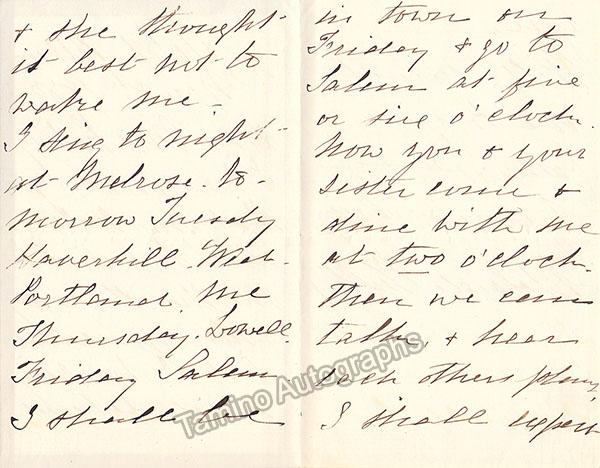 & she thought
it best not to
wake me.
I sing to night
at Melrose. to-
morrow Tuesday
Haverhill. Wed.
Portland, Me
Thursday. Lowell.
Friday Salem
I shall be
in town on
Friday & go to
Salem at five
or six o'clock.
Now you & your
sister come &
dine with me
at two o'clock.
Then we can
talk, & hear
each others plans,
I shall expect
Tamino Autographs